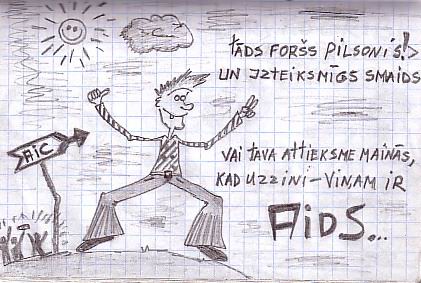 TĀDS FORŠS PILSONIS!>
UN IZTEIKSMĪGS SMAIDS
VAI TAVA ATTIEKSME MAINĀS,
KAD UZZINI-VIŅAM IR
AIDS...
AIC